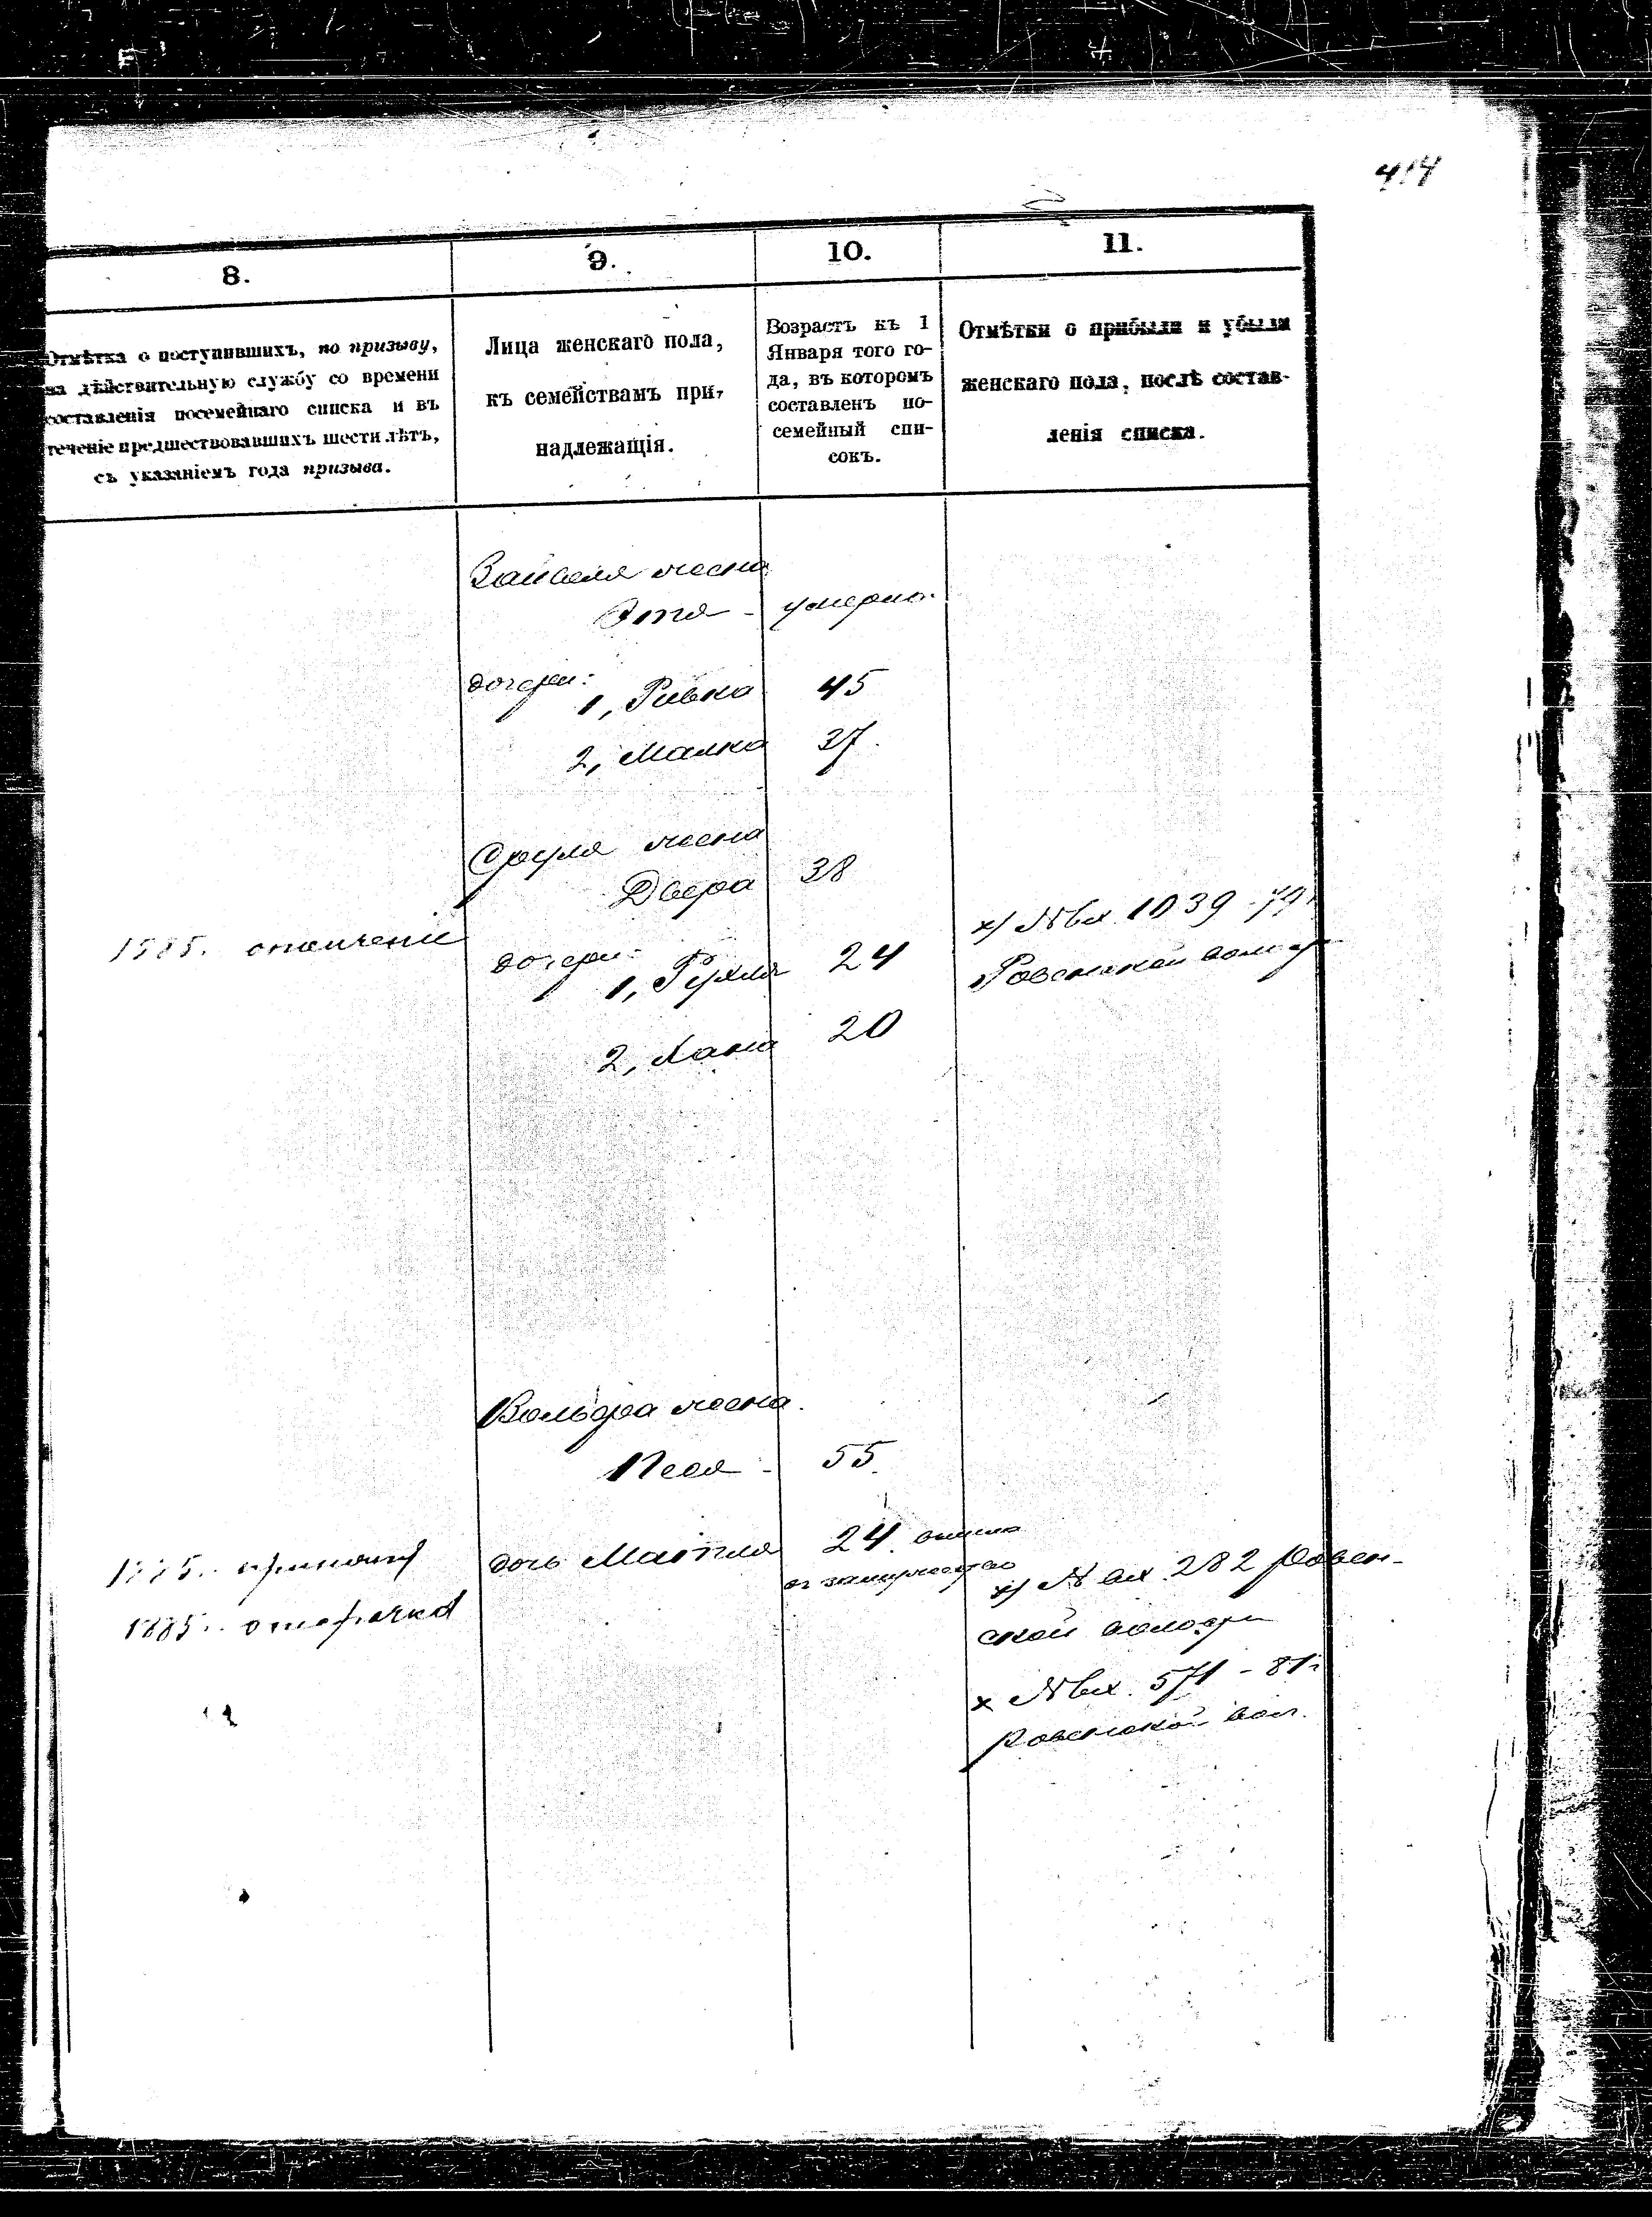 414
8.
9.
10.
11.
Отмѣтка о поступившихъ, по призыву,
на дѣйствительную службу со времени
составленія посемейнаго списка и въ
теченіе предшествовавшихъ шести лѣтъ,
съ указаніемъ года призыва.
Лица женскаго пола,
къ семействамъ при-
надлежащія.
Возрастъ къ 1
Января того го-
да, въ которомъ
составленъ по-
семейный спи-
сокъ.
Отмѣтки о прибыли и убыли
женскаго пола, послѣ состав-
ленія списка.
жена
Этя - умерла
дочери:
1, Ривка 45
2, Малка 37.
Сруля жена
Двера 38
1885. ополченіе
дочери:
1, Рухля 24
х) № вх. 1039 - 79
Ровенской волости
2, Хана 20
Вольфа жена.
Песя - 55.
1885. принятъ
дочь Матля 24. вышла
въ замужество
х) № вх. 282 Ровен-
1885. отсрочка
ской волости
х № вх. 571 - 81г
Ровенской вол.